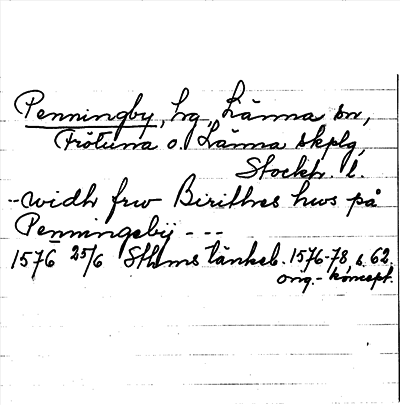 Penningby, hg, Länna sn,
Frötuna o. Länna skplg,
Stockh. l.
-- widh frw Birittes hws på
Penningebij - - -
1576 25/6 Sthms tänkeb. 1576-78 s. 62.
orig.- koncept.